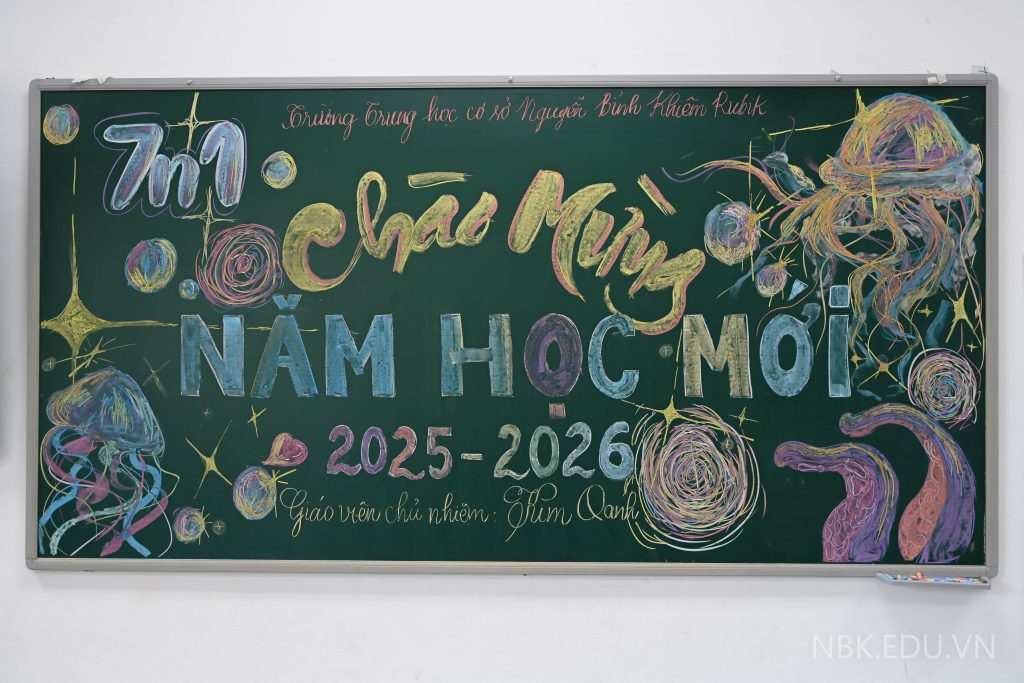 Trường Trung học cơ sở Nguyễn Bỉnh Khiêm Rubik
7m1
Chào Mừng
NĂM HỌC MỚI
2025-2026
Giáo viên chủ nhiệm: Kim Oanh
NBK.EDU.VN